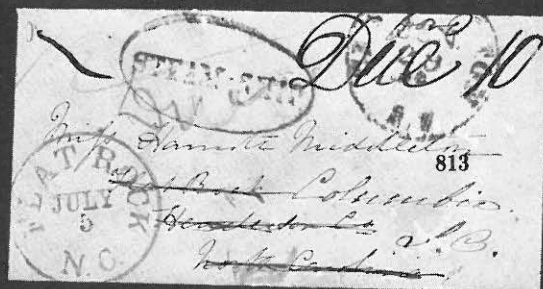 Due 10
STEAM-SHIP
Miss Harriott Middleton
813
Flat Rock Columbia
Henderson Co
S.C.
North Carolina
FLAT ROCK
JULY
5
N.C.